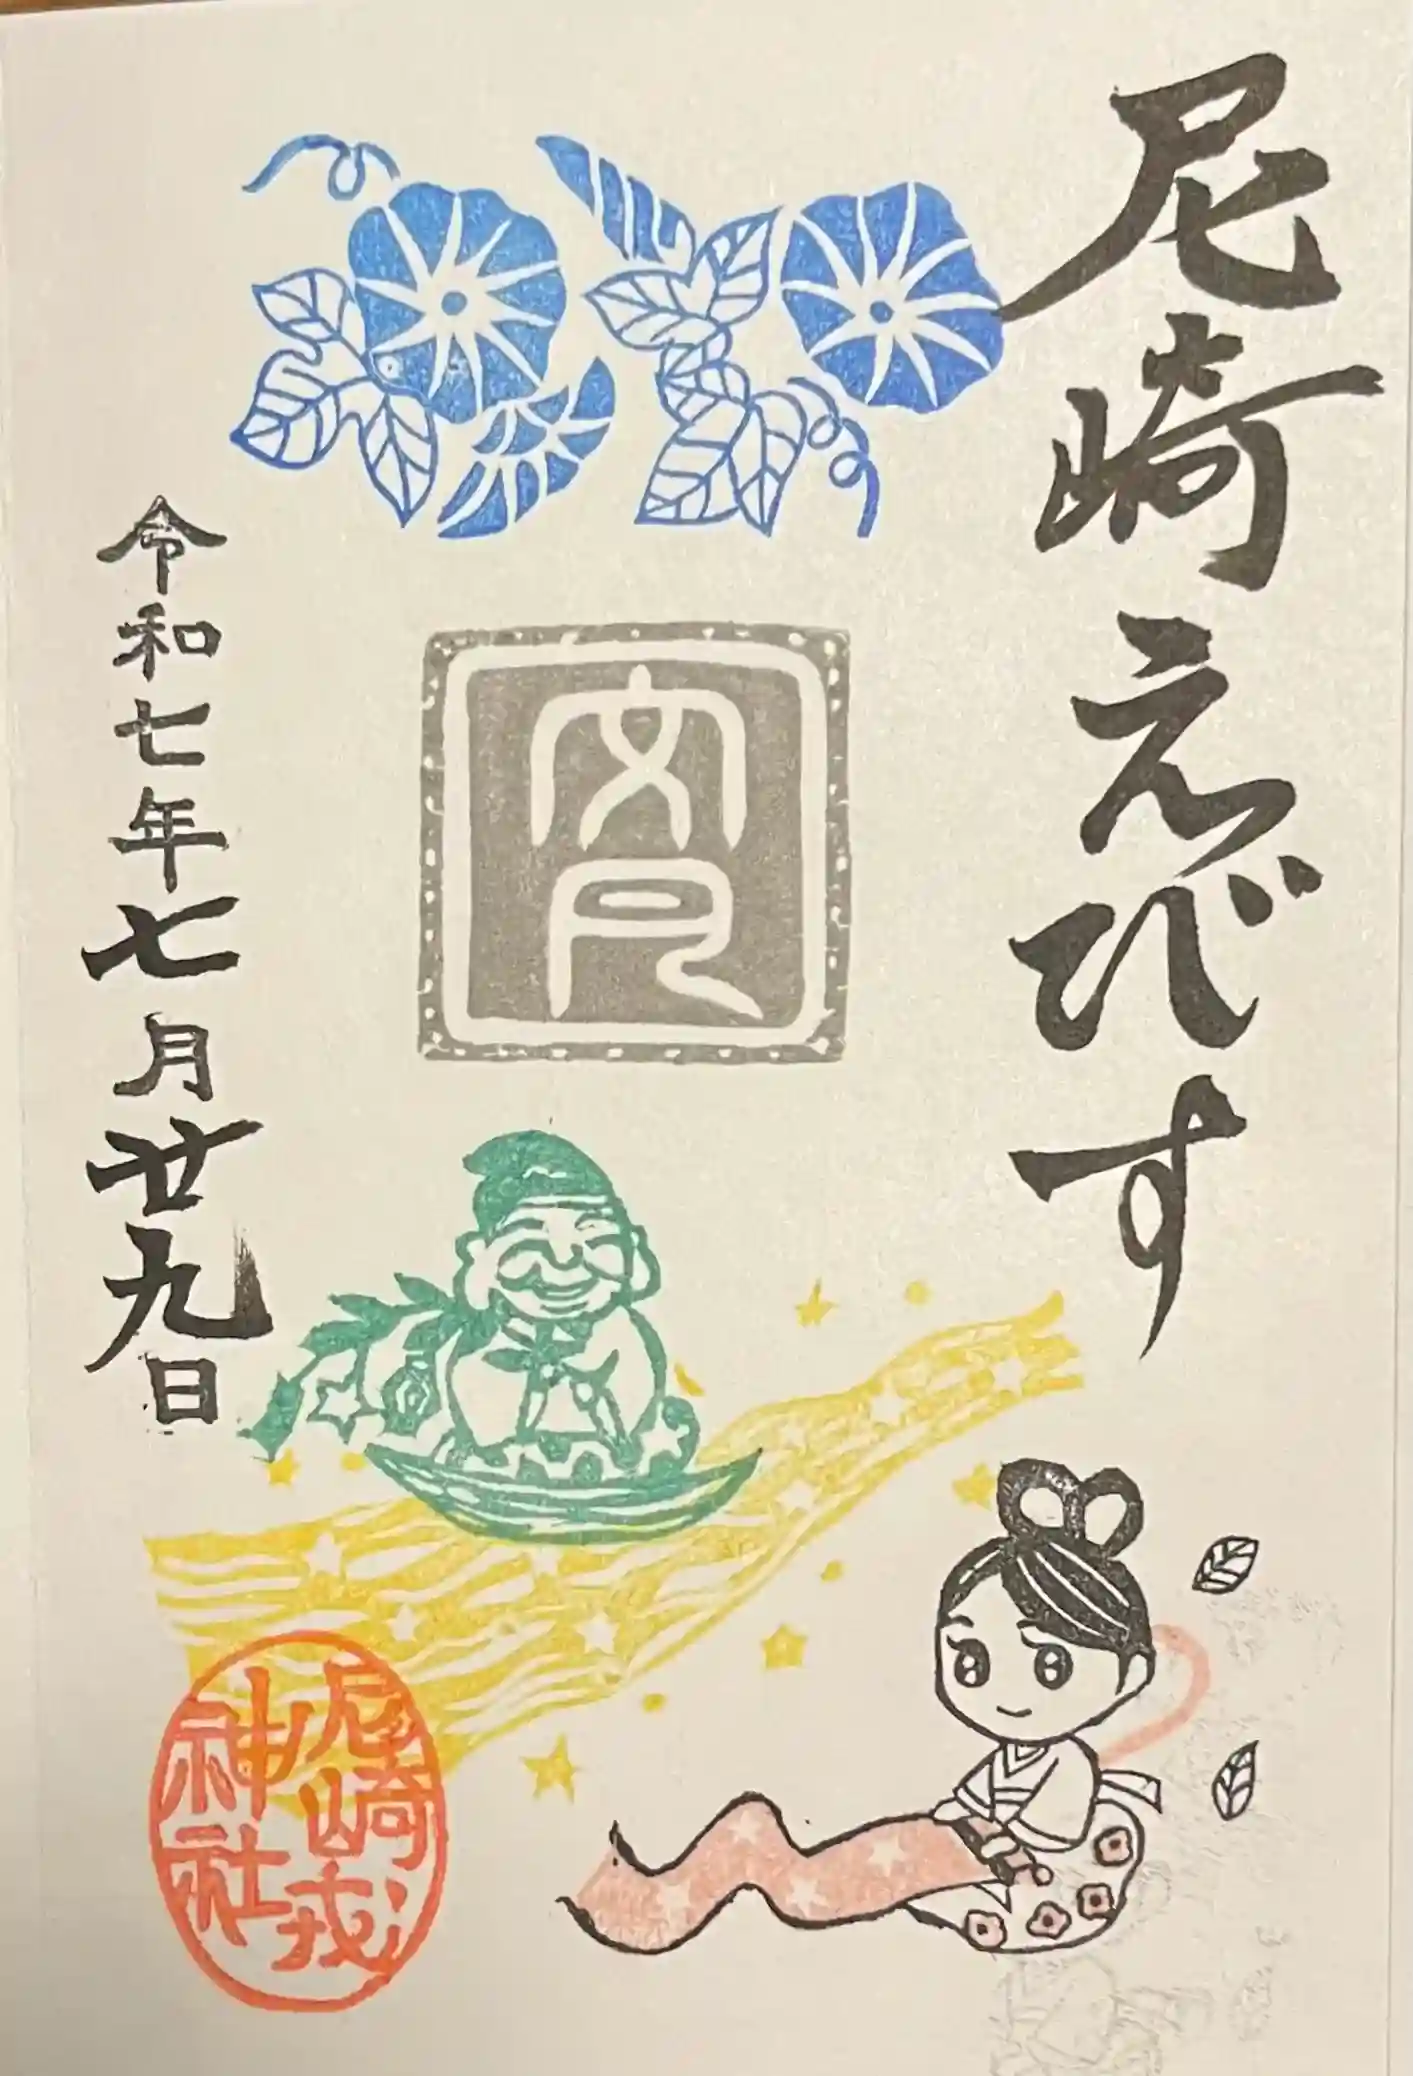 尼崎えびす
令和七年七月廿九日
尼崎戎
神社